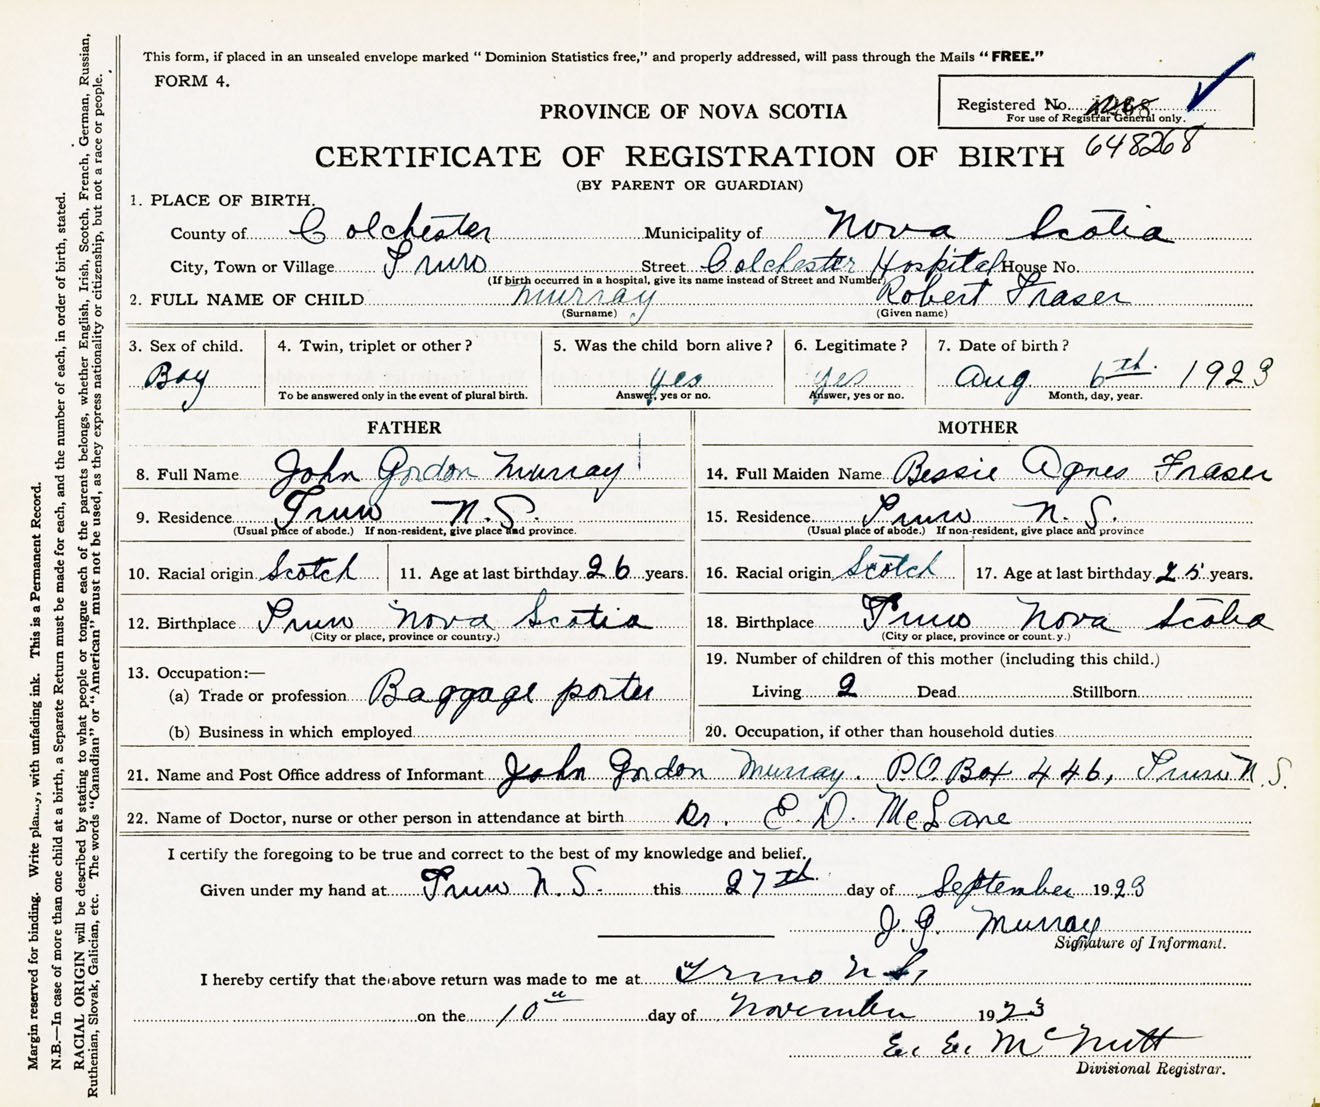 This form, if placed in an unsealed envelope marked “ Dominion Statistics free,” and properly addressed, will pass through the Mails “ FREE.”
FORM 4.
PROVINCE OF NOVA SCOTIA
Registered No.
For use of Registrar General only.
648268
CERTIFICATE OF REGISTRATION OF BIRTH
(BY PARENT OR GUARDIAN)
1. PLACE OF BIRTH.
County of Colchester Municipality of Nova Scotia
City, Town or Village Truro Street Colchester Hospital House No.
(If birth occurred in a hospital, give its name instead of Street and Number)
2. FULL NAME OF CHILD Murray Robert Fraser
(Surname) (Given name)
3. Sex of child. 4. Twin, triplet or other? 5. Was the child born alive? 6. Legitimate? 7. Date of birth?
Boy yes yes Aug 6th. 1923
To be answered only in the event of plural birth. Answer, yes or no. Answer, yes or no. Month, day, year.
FATHER MOTHER
8. Full Name John Gordon Murray 14. Full Maiden Name Bessie Agnes Fraser
9. Residence Truro N.S. 15. Residence Truro N.S.
(Usual place of abode.) If non-resident, give place and province. (Usual place of abode.) If non-resident, give place and province
10. Racial origin Scotch 11. Age at last birthday 26 years. 16. Racial origin Scotch 17. Age at last birthday 25 years.
12. Birthplace Truro Nova Scotia 18. Birthplace Truro Nova Scotia
(City or place, province or country.) (City or place, province or count.y.)
13. Occupation:— 19. Number of children of this mother (including this child.)
(a) Trade or profession Baggage porter Living 2 Dead Stillborn
(b) Business in which employed 20. Occupation, if other than household duties
21. Name and Post Office address of Informant John Gordon Murray. P.O. Box 446, Truro N.S.
22. Name of Doctor, nurse or other person in attendance at birth Dr. E. D. McLane
I certify the foregoing to be true and correct to the best of my knowledge and belief.
Given under my hand at Truro N.S. this 27th. day of September 1923
J. G. Murray
Signature of Informant.
I hereby certify that the above return was made to me at Truro N.S,
on the 10th day of November 1923
E. E. McNutt
Divisional Registrar.
Margin reserved for binding. Write plainly, with unfading ink. This is a Permanent Record.
N.B.—In case of more than one child at a birth, a Separate Return must be made for each, and the number of each, in order of birth, stated.
RACIAL ORIGIN will be described by stating to what people or tongue each of the parents belongs, whether English, Irish, Scotch, French, German, Russian,
Ruthenian, Slovak, Galician, etc. The words “Canadian” or “American” must not be used, as they express nationality or citizenship, but not a race or people.